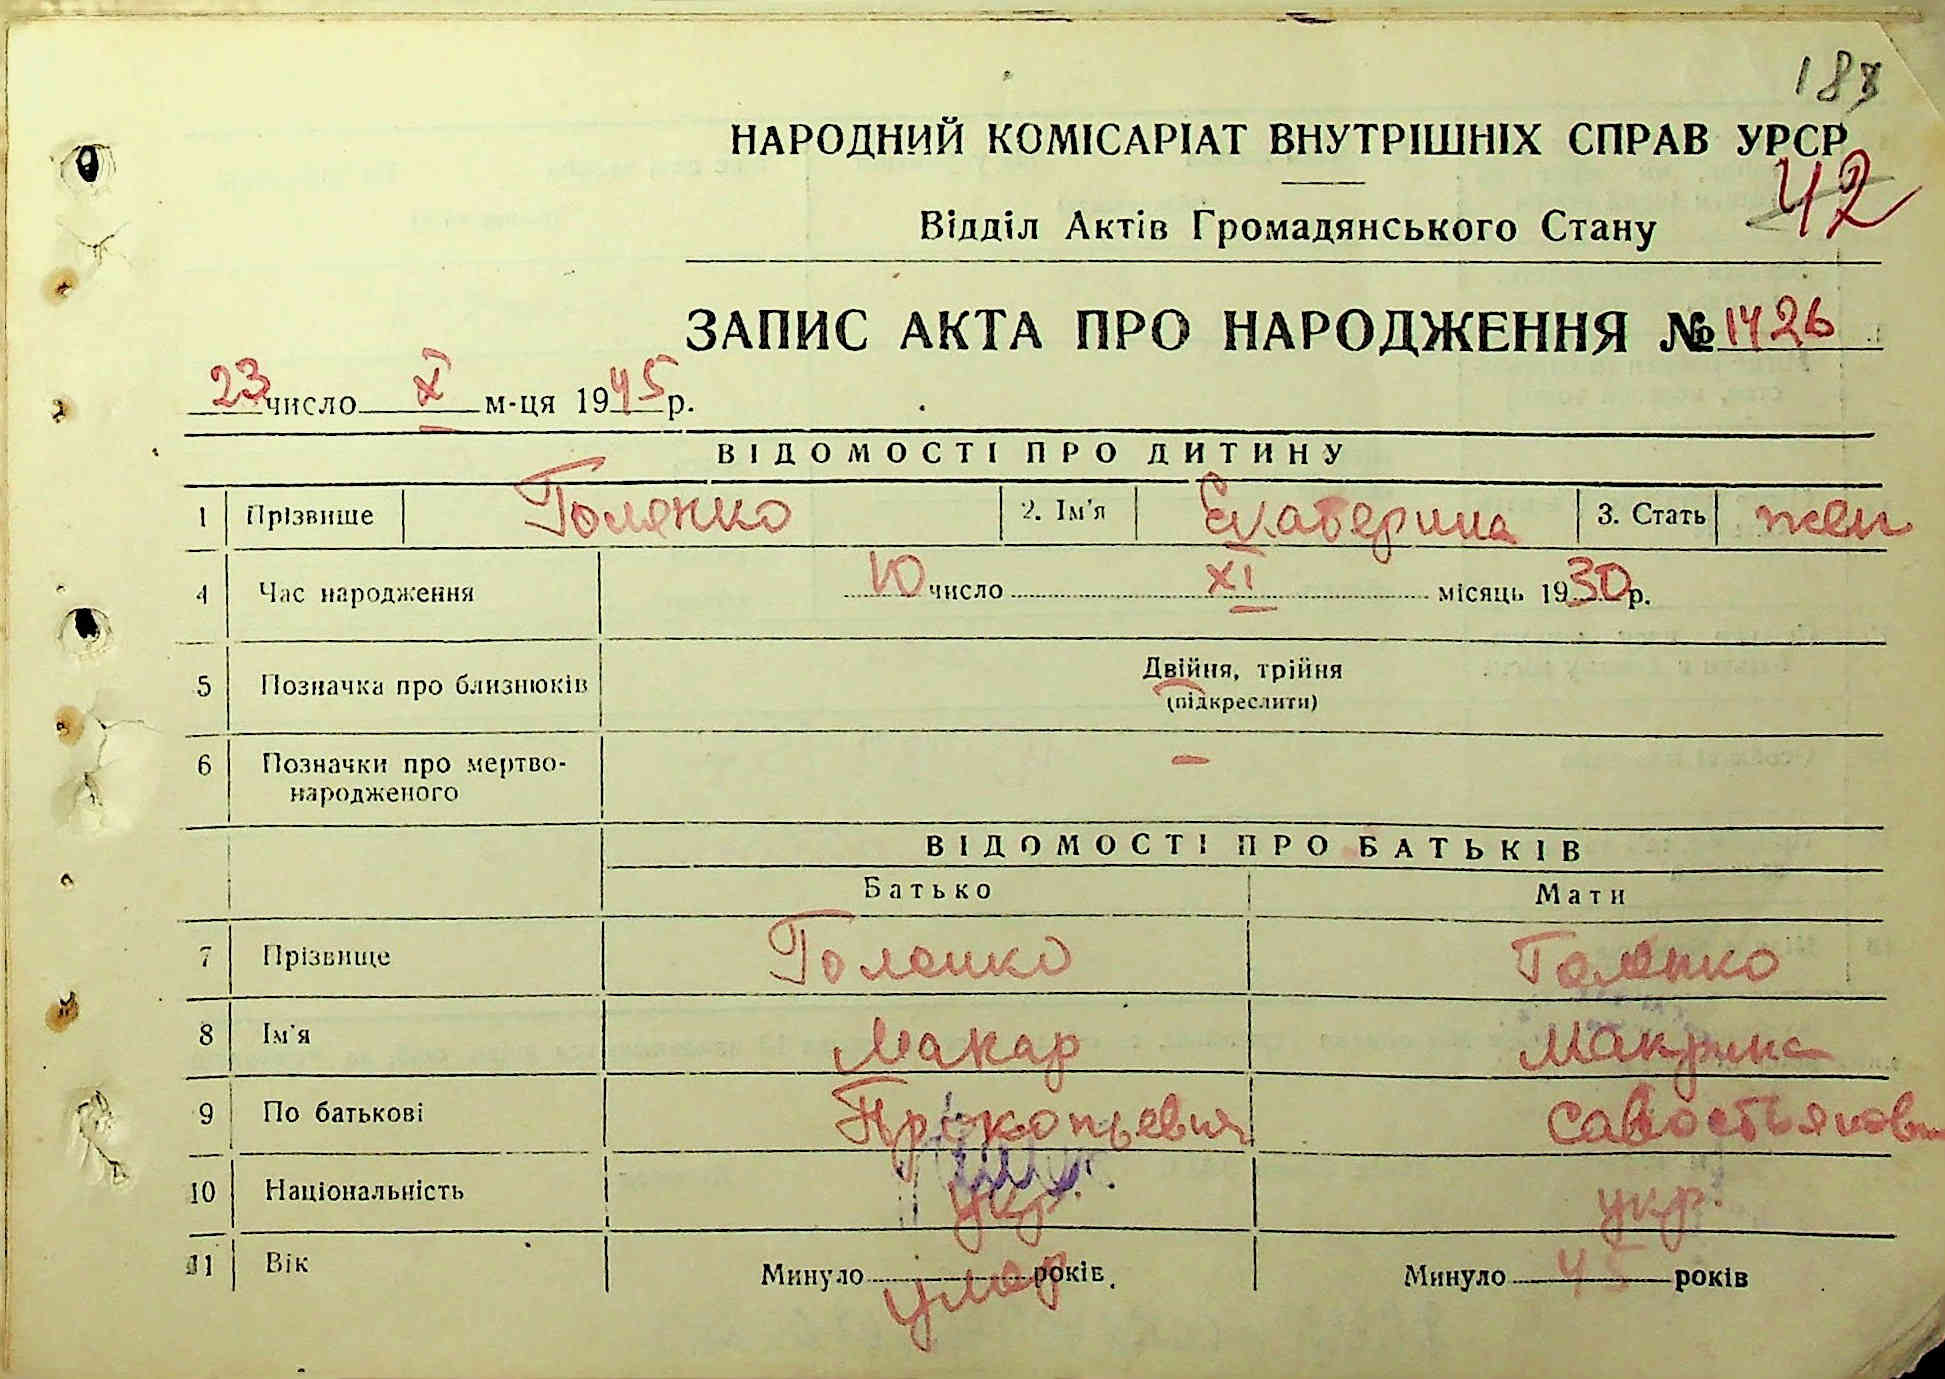 183
НАРОДНИЙ КОМІСАРІАТ ВНУТРІШНІХ СПРАВ УРСР
42
Відділ Актів Громадянського Стану
ЗАПИС АКТА ПРО НАРОДЖЕННЯ № 1426
23 число X м-ця 1945 р.
ВІДОМОСТІ ПРО ДИТИНУ
1 Прізвище Голенко 2. Ім'я Екатерина 3. Стать жен
4 Час народження 10 число XI місяць 1930 р.
5 Позначка про близнюків Двійня, трійня
(підкреслити)
6 Позначки про мертво-
народженого —
ВІДОМОСТІ ПРО БАТЬКІВ
Батько Мати
7 Прізвище Голенко Голенко
8 Ім'я Макар Макрина
9 По батькові Прокопьевич Савостьяновн
10 Національність укр. укр.
11 Вік Минуло умер років. Минуло 45 років